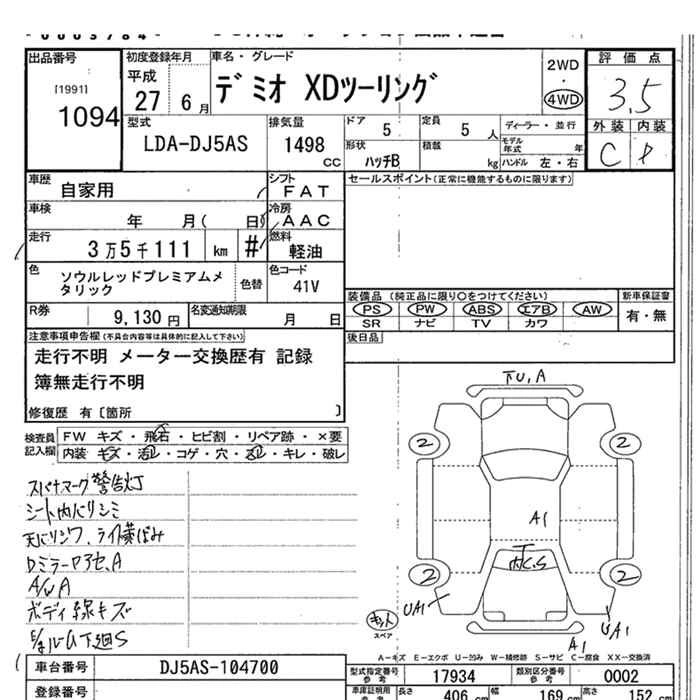 出品番号
[1991]
1094
初度登録年月
平成
27 6 月
車名・グレード
デミオ XDツーリング
2WD
・
4WD
評価点
3.5
外装 内装
C
型式
LDA-DJ5AS
排気量
1498
CC
ドア
5
定員
5 人
ディーラー・並行
形状
ハッチB
積載
kg
モデル年式
年
ハンドル 左・右
車歴
自家用
シフト
FAT
車検
年 月( 日)
冷房
AAC
走行
3万5千111 km #
燃料
軽油
色
ソウルレッドプレミアムメ
タリック
色替
色コード
41V
R券
9,130 円
名変通知期限
月 日
セールスポイント(正常に機能するものに限ります)
装備品 (純正品に限り○をつけてください)
新車保証書
PS PW ABS エアB AW
有・無
SR ナビ TV カワ
後日品
注意事項申告欄(不具合内容等は具体的に記入して下さい)
走行不明 メーター交換歴有 記録
簿無走行不明
修復歴 有〔箇所 〕
検査員
記入欄
FW キズ・飛石・ヒビ割・リペア跡・×要
内装・キズ・汚レ・コゲ・穴・スレ・キレ・破レ
スパナマーク警告灯
A/W A
ボディ線キズ
下U,A
2
2
A1
2
2
UA1
UA1
A1
キット
スペア
A-キズ E-エクボ U-凹み W-補修跡 S-サビ C-腐食 XX-交換済
車台番号
DJ5AS-104700
型式指定番号
参考
17934
類別区分番号
参考
0002
登録番号
車庫証明用
参考
長さ
406 cm
幅
169 cm
高さ
152 cm